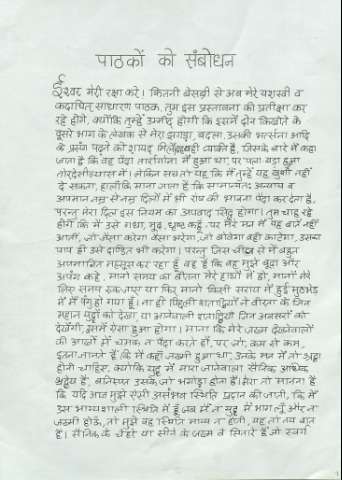 पाठकों को संबोधन
ईश्वर मेरी रक्षा करे। कितनी बेसब्री से अब मेरे यशस्वी व
कदाचित् साधारण पाठक, तुम इस प्रस्तावना की प्रतीक्षा कर
रहे होगे, क्योंकि तुम्हें उम्मीद होगी कि इसमें दोन किखोते के
दूसरे भाग के लेखक से मेरा झगड़ा, बदला, उसकी भर्त्सना आदि
के प्रसंग पढ़ने को शायद मिलें। वही व्यक्ति है, जिसके बारे में कहा
जाता है कि वह पैदा तारागोना में हुआ था, पर पला बढ़ा हुआ
तोरदेसीय्यास में। लेकिन सच तो यह कि मैं तुम्हें यह खुशी नहीं
दे सकता, हालाँकि माना जाता है कि सामान्यतः अन्याय व
अपमान नम्र से नम्र दिलों में भी रोष की भावना पैदा कर देता है,
परन्तु मेरा दिल इस नियम का अपवाद सिद्ध होगा। तुम चाह रहे
होगे कि मैं उसे गधा, मूढ़, धृष्ट कहूँ, पर मेरे मन में यह बात नहीं
आती, जो जैसा करेगा वैसा भरेगा, जो बोयेगा वही काटेगा, उसका
पाप ही उसे दण्डित भी करेगा। परन्तु जिस चीज़ से मैं बहुत
अपमानित महसूस कर रहा हूँ वह है कि वह मुझे बूढ़ा और
अपंग कहे, मानो समय का बीतना मेरे हाथों में हो, मानो मेरे
लिए समय रुक जाए या फिर मानो किसी सराय में हुई मुठभेड़
में मैं पंगु हो गया हूँ। ना ही पिछली शताब्दियों ने वीरता के जिन
महान युद्धों को देखा, या आनेवाली शताब्दियाँ जिन अवसरों को
देखेंगी, इसमें ऐसा हुआ होगा। माना कि मेरे जख़्म देखनेवालों
की आखों में चमक न पैदा करते हों, पर जो, कम से कम,
इतना जानते हैं कि मैं कहाँ जख़्मी हुआ था, उनके मन में तो श्रद्धा
होनी चाहिए, क्योंकि युद्ध में मारा जानेवाला सैनिक अधिक
श्रद्धेय है, बनिस्पत उसके जो भगोड़ा होता है। मेरा तो मानना है
कि यदि आज मुझे ऐसी असंभव स्थिति प्रदान की जाती, कि मैं
उस भाग्यशाली स्थिति में हूँ जब मैं न युद्ध में भाग लूँ और ना
जख़्मी होऊँ, तो मुझे वह स्थिति मान्य न होगी, यह तो तय बात
है। सैनिक के चेहरे या सीने के जख़्म वे सितारे हैं जो स्वर्ग